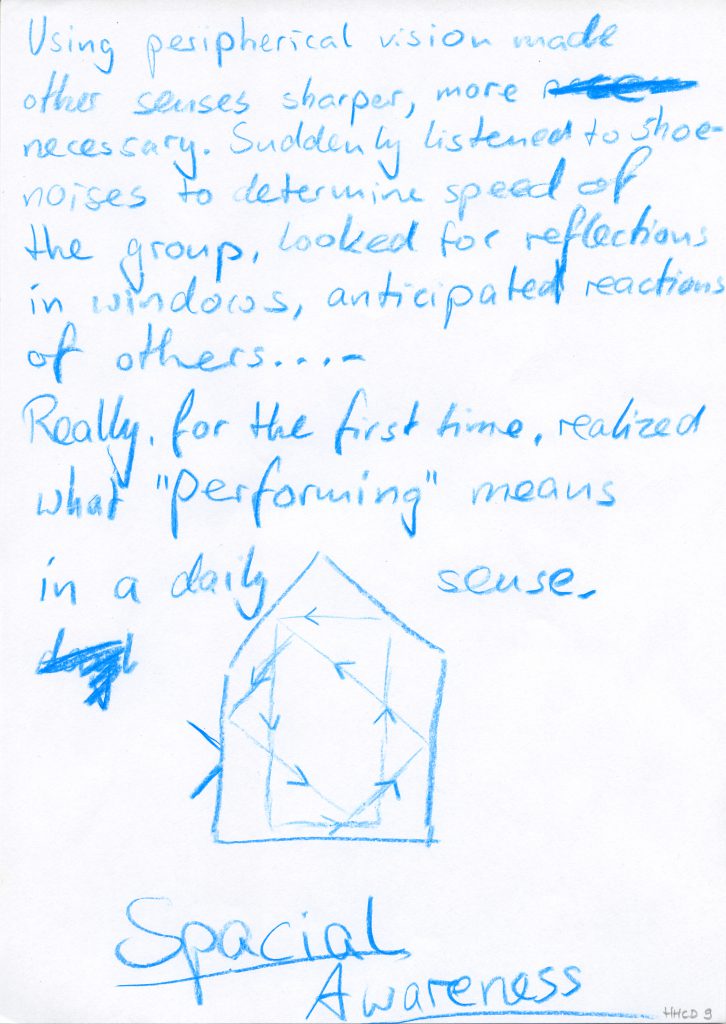 Using peripherical vision made
other senses sharper, more
necessary. Suddenly listened to shoe-
noises to determine speed of
the group, looked for reflections
in windows, anticipated reactions
of others....-
Really, for the first time, realized
what "performing" means
in a daily sense.
Spacial
Awareness
HHCD 9